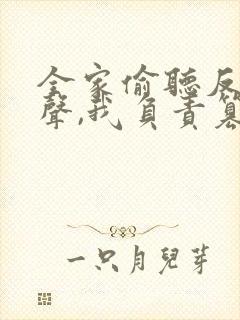 全家偷聽反
聲,我負責篡
一只月兒芽